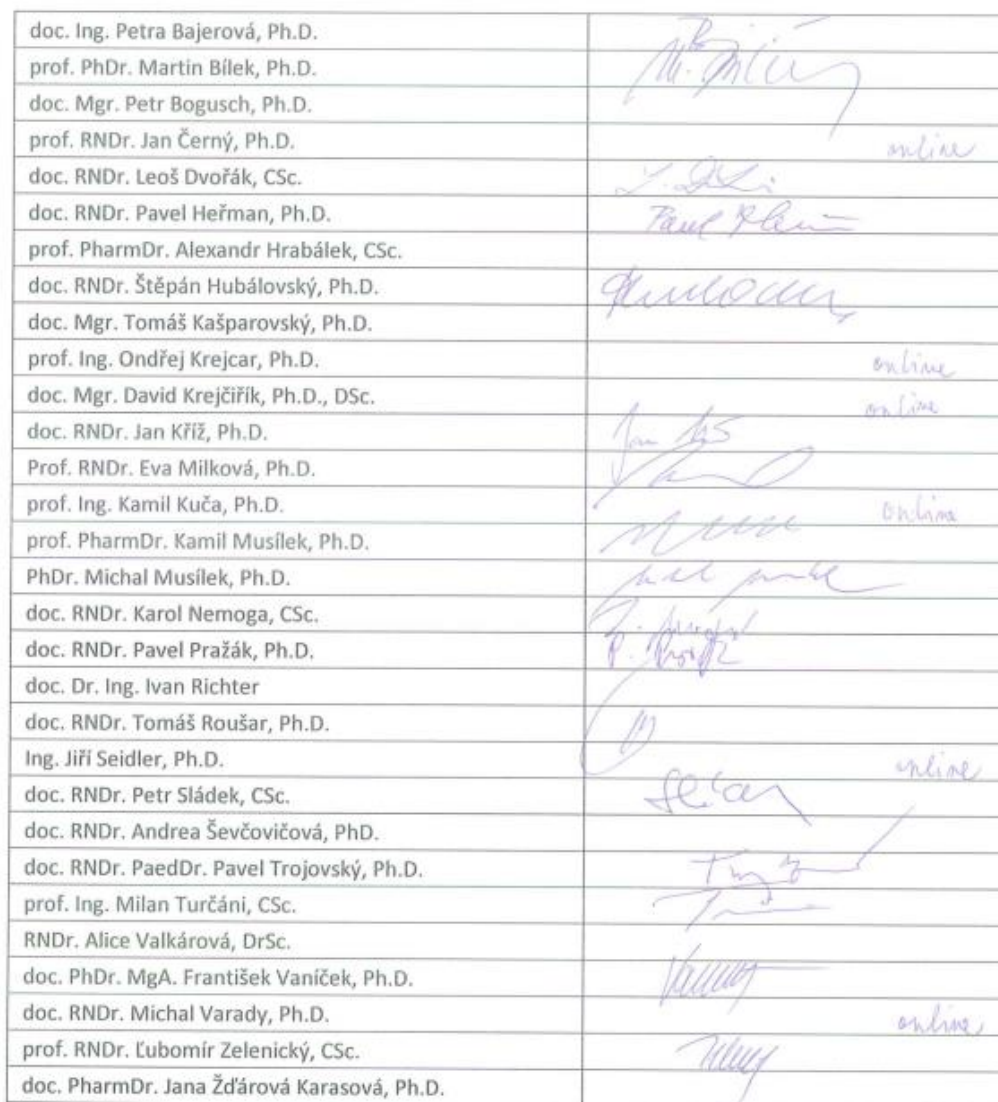 doc. Ing. Petra Bajerová, Ph.D.
prof. PhDr. Martin Bílek, Ph.D.
doc. Mgr. Petr Bogusch, Ph.D.
prof. RNDr. Jan Černý, Ph.D. online
doc. RNDr. Leoš Dvořák, CSc.
doc. RNDr. Pavel Heřman, Ph.D.
prof. PharmDr. Alexandr Hrabálek, CSc.
doc. RNDr. Štěpán Hubálovský, Ph.D.
doc. Mgr. Tomáš Kašparovský, Ph.D.
prof. Ing. Ondřej Krejcar, Ph.D. online
doc. Mgr. David Krejčiřík, Ph.D., DSc. online
doc. RNDr. Jan Kříž, Ph.D.
Prof. RNDr. Eva Milková, Ph.D.
prof. Ing. Kamil Kuča, Ph.D. online
prof. PharmDr. Kamil Musílek, Ph.D.
PhDr. Michal Musílek, Ph.D.
doc. RNDr. Karol Nemoga, CSc.
doc. RNDr. Pavel Pražák, Ph.D.
doc. Dr. Ing. Ivan Richter
doc. RNDr. Tomáš Roušar, Ph.D.
Ing. Jiří Seidler, Ph.D. online
doc. RNDr. Petr Sládek, CSc.
doc. RNDr. Andrea Ševčovičová, PhD.
doc. RNDr. PaedDr. Pavel Trojovský, Ph.D.
prof. Ing. Milan Turčáni, CSc.
RNDr. Alice Valkárová, DrSc.
doc. PhDr. MgA. František Vaníček, Ph.D.
doc. RNDr. Michal Varady, Ph.D. online
prof. RNDr. Ľubomír Zelenický, CSc.
doc. PharmDr. Jana Žďárová Karasová, Ph.D.